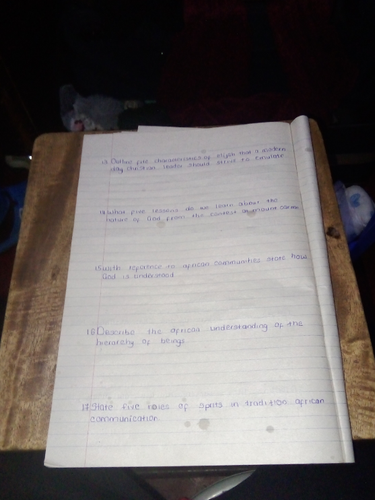 13 Outline five characteristics of Elijah that a modern
day christian leader should strive to emulate
14 What five lessons do we learn about the
nature of God from the contest at mount carmel
15 With reference to african communities state how
God is understood
16 Describe the african understanding of the
hierarchy of beings
17 State five roles of spirits in tradition african
communication.